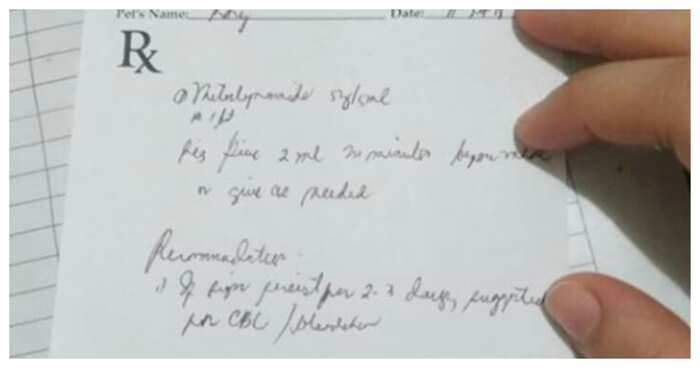 Pet's Name: Date:
Rx
1) Metoclopramide 5mg/5ml
Sig give 2 ml 30 minutes before meal
or give as needed
Recommendation:
1) If sign persist for 2-3 days, suggested
for CBC /